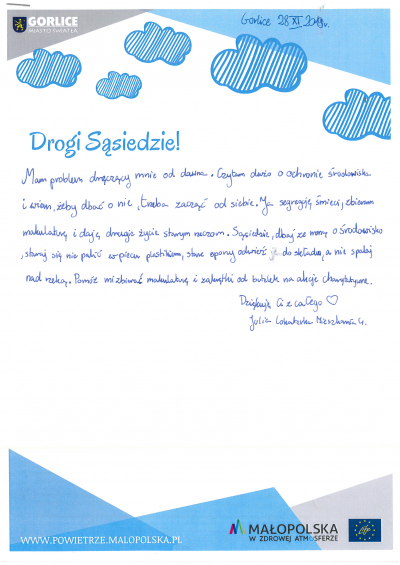 GORLICE
MIASTO ŚWIATŁA
Gorlice 28 XI 2019r.
Drogi Sąsiedzie!
Mam problem dręczący mnie od dawna. Czytam dużo o ochronie środowiska
i wiem, żeby dbać o nie, trzeba zacząć od siebie. Ja segreguję śmieci, zbieram
makulaturę i daję drugie życie starym rzeczom. Sąsiedzie, dbaj ze mną o środowisko
, staraj się nie palić w piecu plastikiem, stare opony odwieź je do składu, a nie spalaj
nad rzeką. Pomóż mi zbierać makulaturę i zakrętki od butelek na akcje charytatywne.
Dziękuję Ci z całego ♡
Julia Lokatorka Mieszkania 4.
WWW.POWIETRZE.MALOPOLSKA.PL
MAŁOPOLSKA
W ZDROWEJ ATMOSFERZE